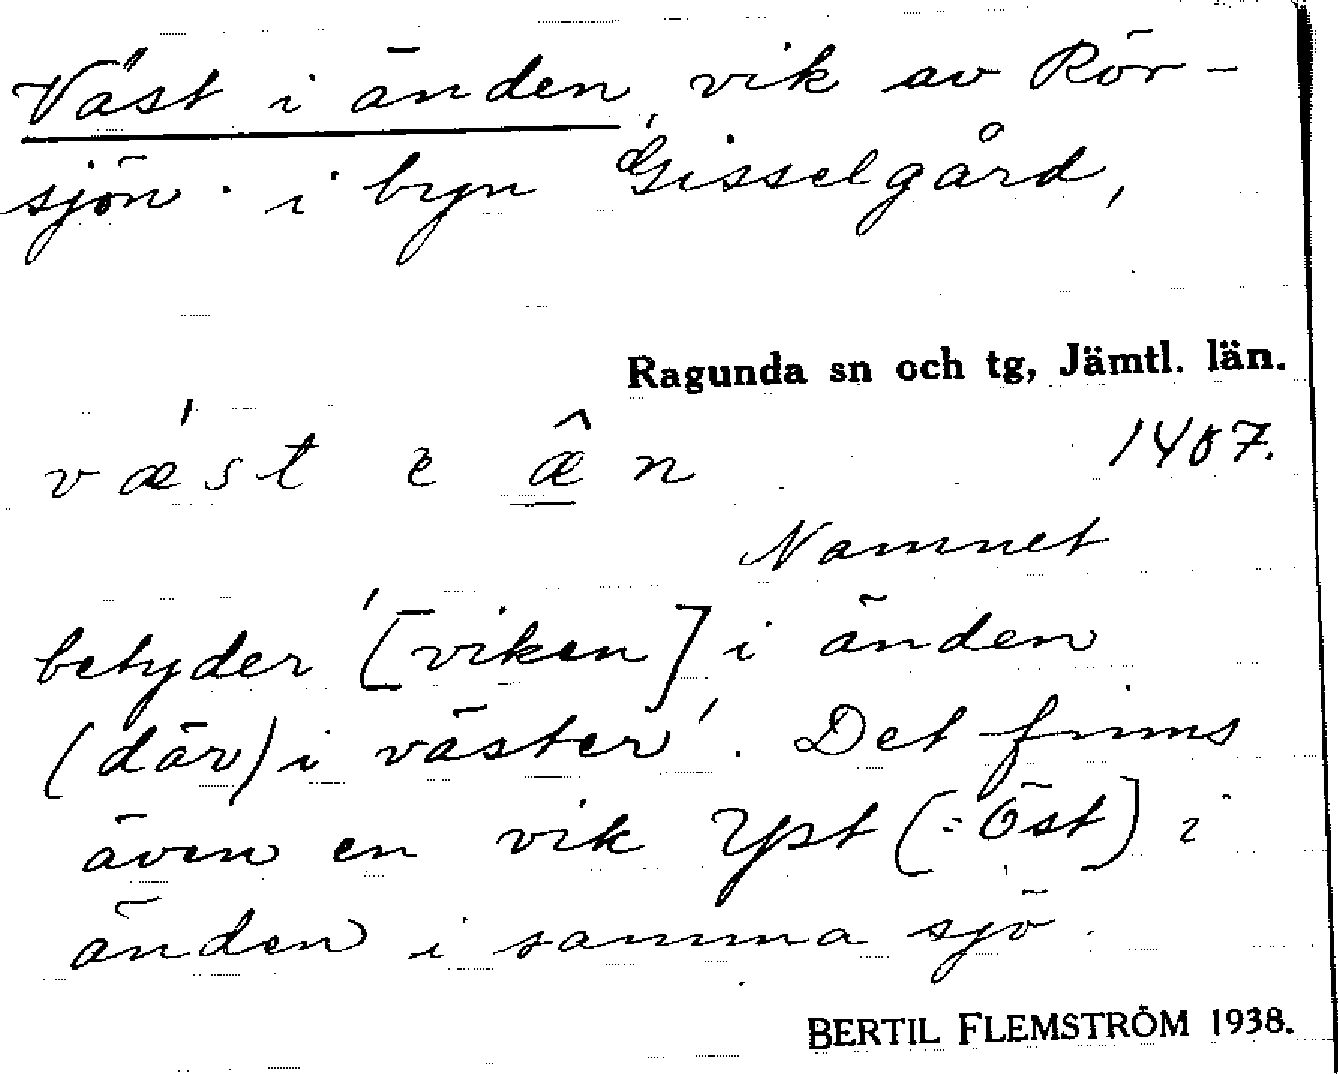 Väst i änden, vik av Rör-
sjön i byn Gisselgård,
Ragunda sn och tg, Jämtl. län.
vǽst e æ̂n
1407.
Namnet
betyder '[viken] i änden
(där) i väster'. Det finns
även en vik Yst (: Öst) i
änden i samma sjö.
BERTIL FLEMSTRÖM 1938.